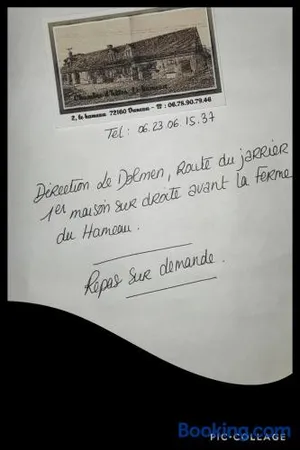 Chambre d'hôtes Le Hameau
2, le hameau 72160 Duneau - ☎ : 06.78.90.79.46
Tel: 06.23.06.15.37
Direction de Dolmen, Route du jarrier
1er maison sur droite avant la ferme
du Hameau.
Repas sur demande.
Booking.com
PIC•COLLAGE